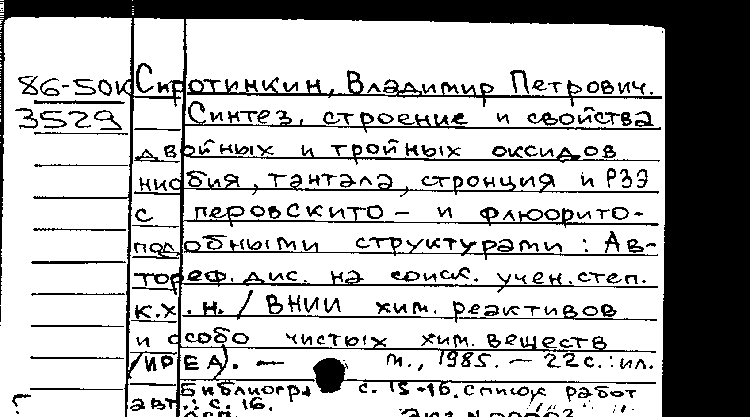 86-50к Сиротинкин, Владимир Петрович.
3529 Синтез, строение и свойства
двойных и тройных оксидов
ниобия, тантала, стронция и РЗЭ
с перовскито- и флюорито-
подобными структурами : Ав-
тореф. дис. на соиск. учен. степ.
к.х.н. / ВНИИ хим. реактивов
и особо чистых хим. веществ
/ИРЕА). — М., 1985. — 22с. : ил.
Библиогр. с. 15-16. список работ
авт.: с. 16.